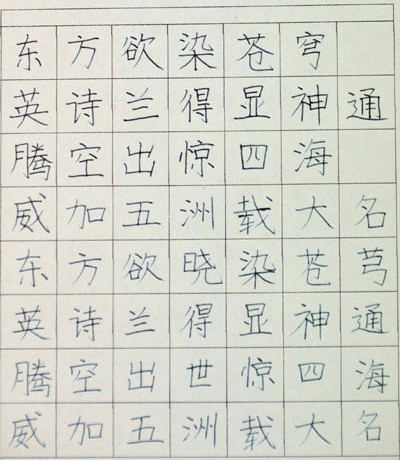 东方欲染苍穹
英诗兰得显神通
腾空出惊四海
威加五洲载大名
东方欲晓染苍芎
英诗兰得显神通
腾空出世惊四海
威加五洲载大名